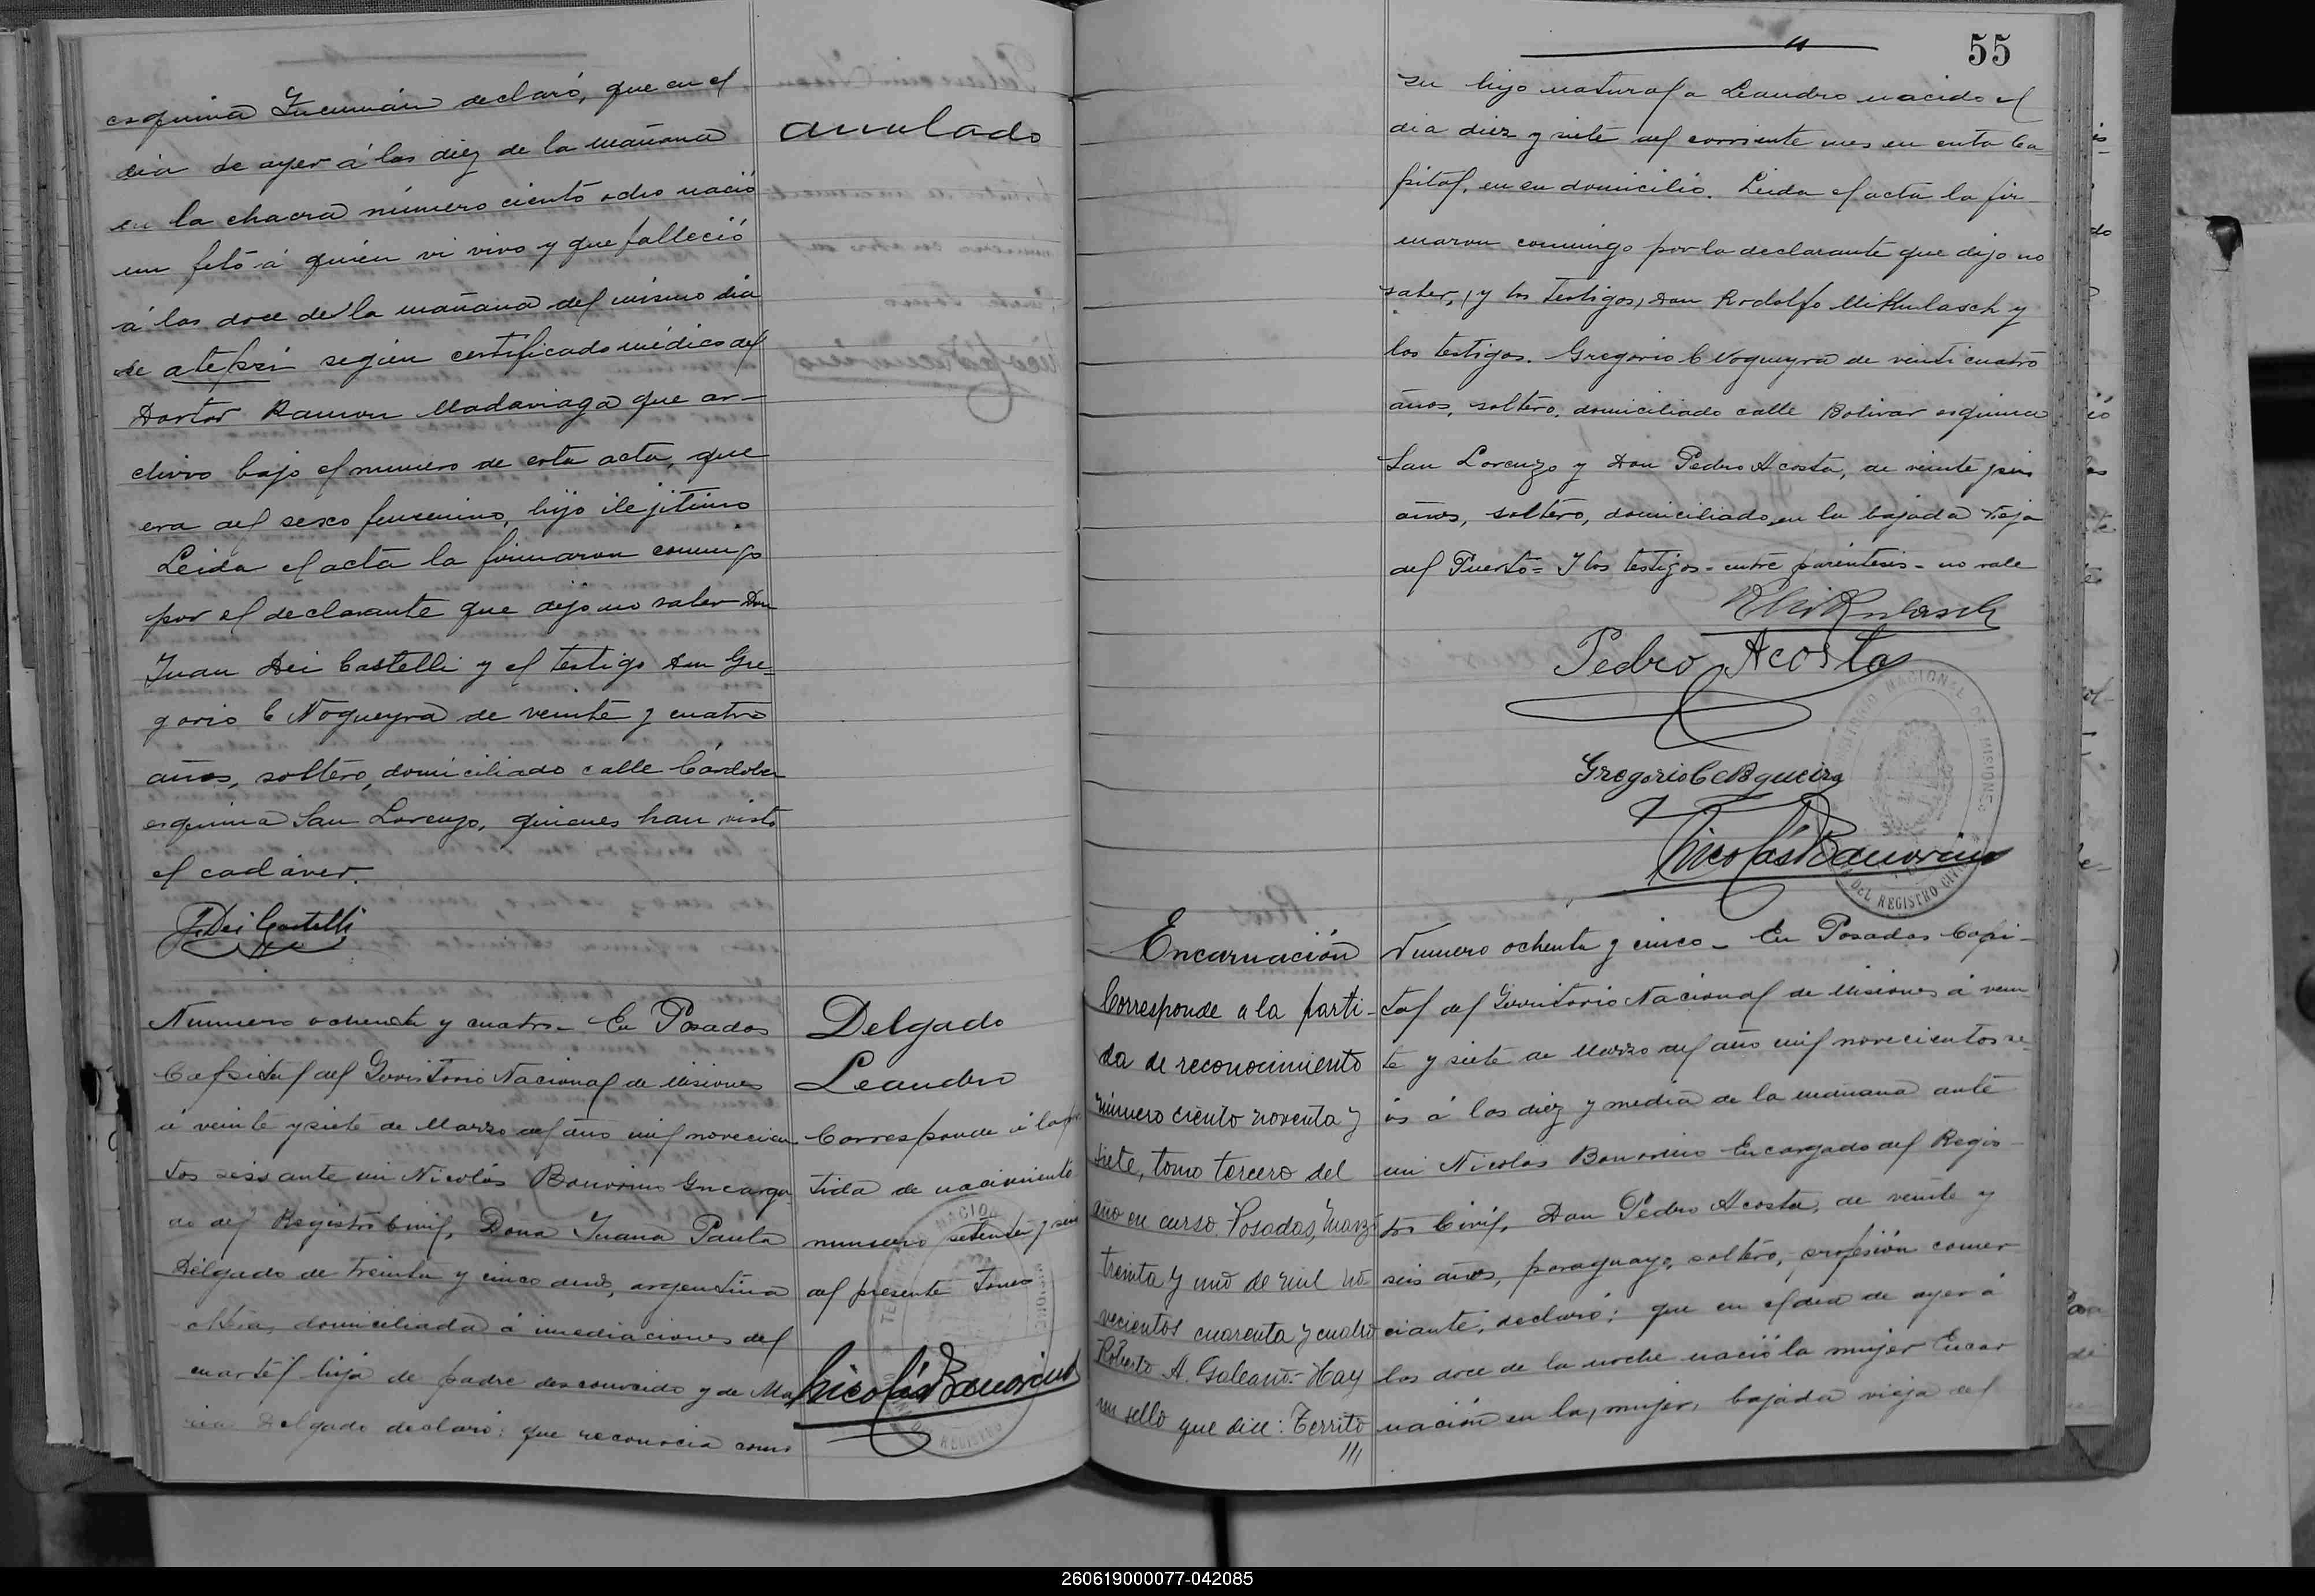 esquina Tucumán declaró, que en el
dia de ayer á las diez de la mañana
en la chacra número ciento ocho nació
un feto á quien vi vivo y que falleció
á las doce de la mañana del mismo dia
de atepsi según certificado médico del
Doctor Ramon Madariaga que ar-
chivo bajo el numero de esta acta, que
era del sexo femenino, hijo ilejitimo
Leida el acta la firmaron conmigo
por el declarante que dijo no saber Don
Juan Dei Castelli y el testigo Don Gre-
gorio C Nogueyra de veinte y cuatro
años, soltero, domiciliado calle Córdoba
esquina San Lorenzo, quienes han visto
el cadáver.
J. Dei Castelli
anulado
Numero ochenta y cuatro - En Posadas
Capital del Territorio Nacional de Misiones
á veinte y siete de Marzo del año mil novecien
tos seis ante mi Nicolás Bonorino Encarga
do del Registro Civil, Dona Juana Paula
Delgado de treinta y cinco años, argentina
domiciliada á imediaciones del
cuartel hija de padre desconocido y de Ma
ria Delgado declaró: que reconocia como
Delgado
Leandro
Corresponde á la par
tida de nacimiento
numero setenta y seis
del presente Tomo
Nicolás Bonorino
55
su hijo natural a Leandro nacido el
dia diez y siete del corriente mes en esta Ca
pital, en su domicilio. Leida el acta la fir-
maron conmigo por la declarante que dijo no
saber, (y los testigos) Don Rodolfo Mikkulasch y
los testigos. Gregorio C Nogueyra de veinticuatro
años, soltero, domiciliado calle Bolivar esquina
San Lorenzo y Don Pedro Acosta, de veinte y seis
años, soltero, domiciliado en la bajada vieja
del Puerto = Y los testigos - entre parentesis - no vale
Pedro Acosta
Gregorio C Nogueira
Nicolás Bonorino
TERRITORIO NACIONAL DE MISIONES
DEL REGISTRO CIVIL
Encarnación
Corresponde a la parti-
da de reconocimiento
número ciento noventa y
siete, tomo tercero del
año en curso. Posadas, Marzo
treinta y uno de mil no
vecientos cuarenta y cuatro
Roberto A. Galeano.- Hay
un sello que dice: Territo
///
Numero ochenta y cinco - En Posadas Capi-
tal del Territorio Nacional de Misiones á vein
te y siete de Marzo del año mil novecientos se
is á las diez y media de la mañana ante
mi Nicolas Bonorino Encargado del Regis-
tro Civil, Don Pedro Acosta, de veinte y
seis años, paraguayo, soltero, profesión comer
ciante, declaró: que en el dia de ayer á
las doce de la noche nació la mujer Encar
nación en la, mujer, bajada vieja del